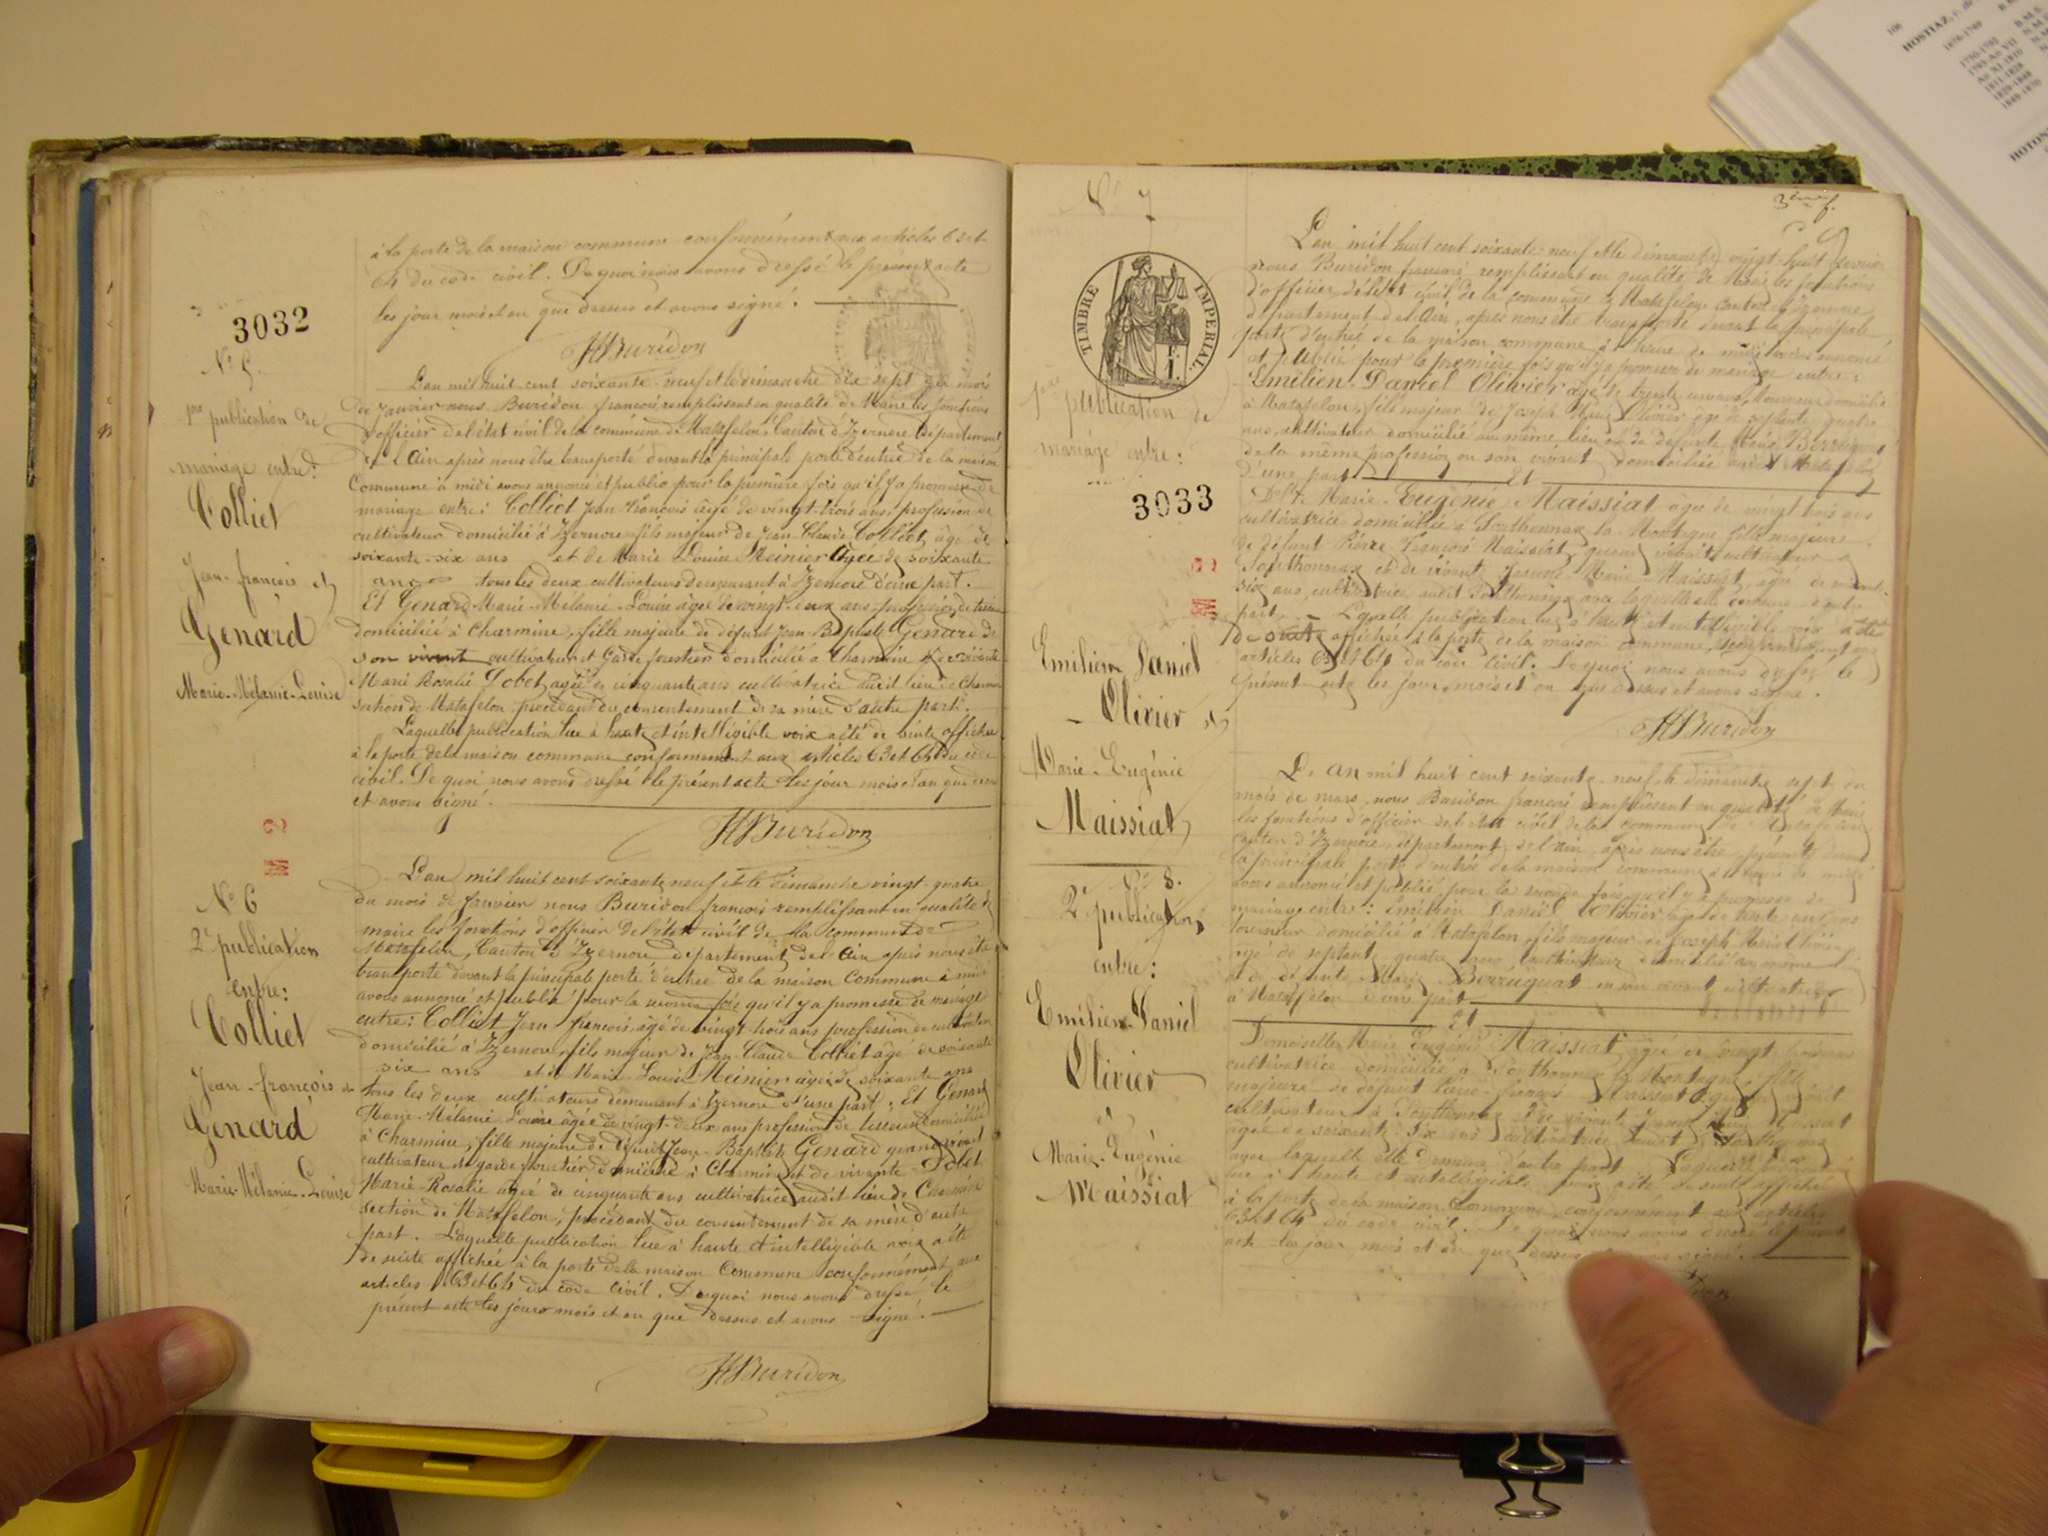 à la porte de la maison commune conformément aux articles 63 et
64 du code civil. De quoi nous avons dressé le présent acte
les jour mois et an que dessus et avons signé.
Buridon
3032
N° 5.
1re publication de
mariage entre:
Colliet
Jean-françois et
Genard
Marie-Mélanie-Louise
L'an mil huit cent soixante-neuf et le dimanche dix sept du mois
de Janvier nous Buridon françois remplissant en qualité de Maire les fonctions
d'officier de l'état civil de la commune de Matafelon, Canton d'Izernore, département
de l'Ain après nous être transporté devant la principale porte d'entrée de la maison
Commune à midi avons annoncé et publié pour la première fois qu'il y a promesse de
mariage entre: Colliet Jean François âgé de vingt-trois ans, profession de
cultivateur domicilié à Izernore fils majeur de Jean-Claude Colliet, âgé de
soixante-six ans et de Marie Louise Meinier âgée de soixante
ans tous les deux cultivateurs demeurant à Izernore d'une part.
Et Genard Marie-Mélanie-Louise âgée de vingt-deux ans, profession de
domiciliée à Charmine, fille majeure de défunt Jean-Baptiste Genard de
son vivant cultivateur et Garde forestier domicilié à Charmine et de vivante
Marie Rosalie Jobet, agée de cinquante ans cultivatrice audit lieu de Charmine
section de Matafelon, procédant du consentement de sa mère d'autre part.
Laquelle publication lue à haute et intelligible voix a été de suite affichée
à la porte de la maison commune conformément aux articles 63 et 64 du code
civil. De quoi nous avons dressé le présent acte les jour mois et an que dessus
et avons signé.
Buridon
N° 6
2e publication
entre:
Colliet
Jean-françois et
Genard
Marie-Mélanie-Louise
L'an mil huit cent soixante neuf et le dimanche vingt-quatre
du mois de Janvier nous Buridon françois remplissant en qualité de
maire les fonctions d'officier de l'état civil de la commune de
Matafelon, Canton d'Izernore département de l'Ain après nous être
transporté devant la principale porte d'entrée de la maison Commune à midi
avons annoncé et publié pour la seconde fois qu'il y a promesse de mariage
entre: Colliet Jean François, âgé de vingt trois ans profession de cultivateur
domicilié à Izernore, fils majeur de Jean-Claude Colliet âgé de soixante
six ans et de Marie Louise Meinier agée de soixante ans
tous les deux cultivateurs demeurant à Izernore d'une part. Et Genard
Marie-Mélanie Louise âgée de vingt-deux ans profession de domiciliée
à Charmine, fille majeure de défunt Jean-Baptiste Genard quand vivait
cultivateur et garde forestier domicilié à Charmine et de vivante Jobet
Marie-Rosalie agée de cinquante ans cultivatrice audit lieu de Charmine
section de Matafelon, procédant du consentement de sa mère d'autre
part. Laquelle publication lue à haute et intelligible voix a été
de suite affichée à la porte de la maison Commune conformément aux
articles 63 et 64 du code civil. De quoi nous avons dressé le
présent acte les jours mois et an que dessus et avons signé.
Buridon
N° 7
3ème f.
TIMBRE IMPERIAL
1re publication de
mariage entre:
3033
Emilien Daniel
Olivier et
Marie-Eugénie
Maissiat
L'an mil huit cent soixante-neuf et le dimanche vingt-huit février
nous Buridon françois remplissant en qualité de Maire les fonctions
d'officier de l'état civil de la commune de Matafelon canton d'Izernore
département de l'Ain, après nous être transporté devant la principale
porte d'entrée de la maison commune à l'heure de midi avons annoncé
et publié pour la première fois qu'il y a promesse de mariage entre:
Emilien-Daniel Olivier âgé de trente un ans, tourneur domicilié
à Matafelon, fils majeur de Joseph Marie Olivier âgé de septante quatre
ans, cultivateur domicilié au même lieu et de défunte Marie Berruquat
de la même profession en son vivant domiciliée audit Matafelon
D'une part Et
Dlle Marie-Eugénie Maissiat âgée de vingt trois ans
cultivatrice domiciliée à Sonthonnax la Montagne fille majeure
de défunt Pierre François Maissiat quand vivait cultivateur à
Sonthonnax et de vivante Marie Maissiat, âgée de soixante
six ans, cultivatrice audit Sonthonnax avec laquelle elle demeure d'autre
part. Laquelle publication lue à haute et intelligible voix a été
de suite affichée à la porte de la maison commune, conformément aux
articles 63 et 64 du code civil. De quoi nous avons dressé le
présent acte les jour, mois et an que dessus et avons signé.
Buridon
N° 8.
2e publication
entre:
Emilien-Daniel
Olivier
et
Marie-Eugénie
Maissiat
L'an mil huit cent soixante-neuf le dimanche sept du
mois de mars, nous Buridon françois remplissant en qualité de Maire
les fonctions d'officier de l'état civil de la commune de Matafelon
canton d'Izernore, département de l'Ain, après nous être présenté devant
la principale porte d'entrée de la maison commune à l'heure de midi
avons annoncé et publié pour la seconde fois qu'il y a promesse de
mariage entre: Emilien Daniel Olivier âgé de trente un ans
tourneur domicilié à Matafelon, fils majeur de Joseph Marie Olivier
âgé de septante quatre ans cultivateur domicilié au même lieu
et de défunte Marie Berruquat en son vivant cultivatrice
à Matafelon d'une part
Et
Demoiselle Marie Eugénie Maissiat, âgée de vingt trois ans
cultivatrice domiciliée à Sonthonnax la Montagne, fille
majeure de défunt Pierre françois Maissiat quand vivait
cultivateur à Sonthonnax et de vivante Marie Maissiat
âgée de soixante-six ans cultivatrice audit Sonthonnax
avec laquelle elle demeure d'autre part. Laquelle publication
lue à haute et intelligible voix a été de suite affichée
à la porte de la maison commune, conformément aux articles
63 et 64 du code civil. De quoi nous avons dressé le présent
acte les jour, mois et an que dessus et avons signé.
106
HOSTIAZ,